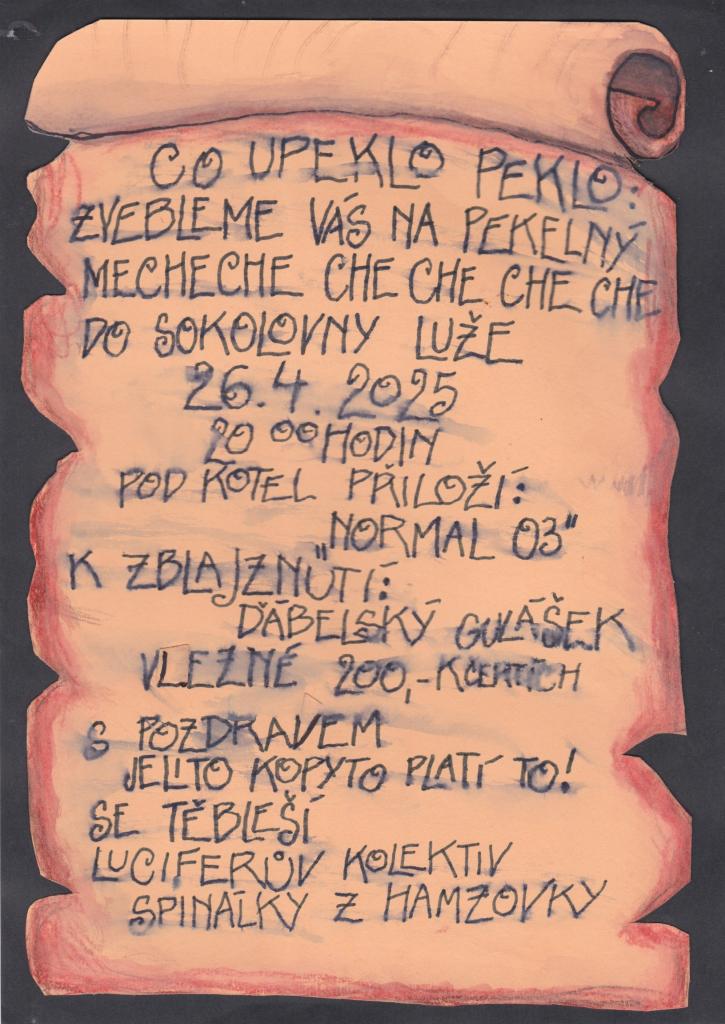 CO UPEKLO PEKLO:
ZVEBLEME VÁS NA PEKELNÝ
MECHECHE CHE CHE CHE CHE
DO SOKOLOVNY LUŽE
26.4.2025
20 00 HODIN
POD KOTEL PŘILOŽÍ:
„NORMAL 03“
K ZBLAJZNUTÍ:
ĎÁBELSKÝ GULÁŠEK
VLEZNÉ 200,-KČERTÍCH
S POZDRAVEM
JELITO KOPYTO PLATÍ TO!
SE TĚBLEŠÍ
LUCIFERŮV KOLEKTIV
SPINÁLKY Z HAMZOVKY